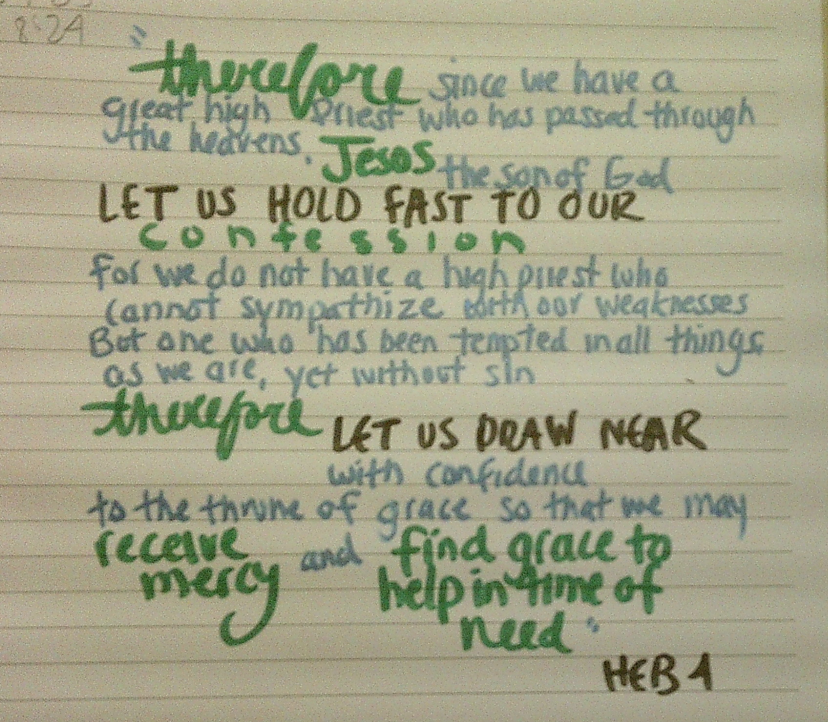 8:24
"therefore since we have a
great high Priest who has passed through
the heavens. Jesos the son of God
LET US HOLD FAST TO OUR
confession
for we do not have a high priest who
cannot sympathize with our weaknesses
But one who has been tempted in all things
as we are, yet without sin
therefore LET US DRAW NEAR
with confidence
to the throne of grace so that we may
receive and find grace to
mercy help in time of
need"
HEB 4